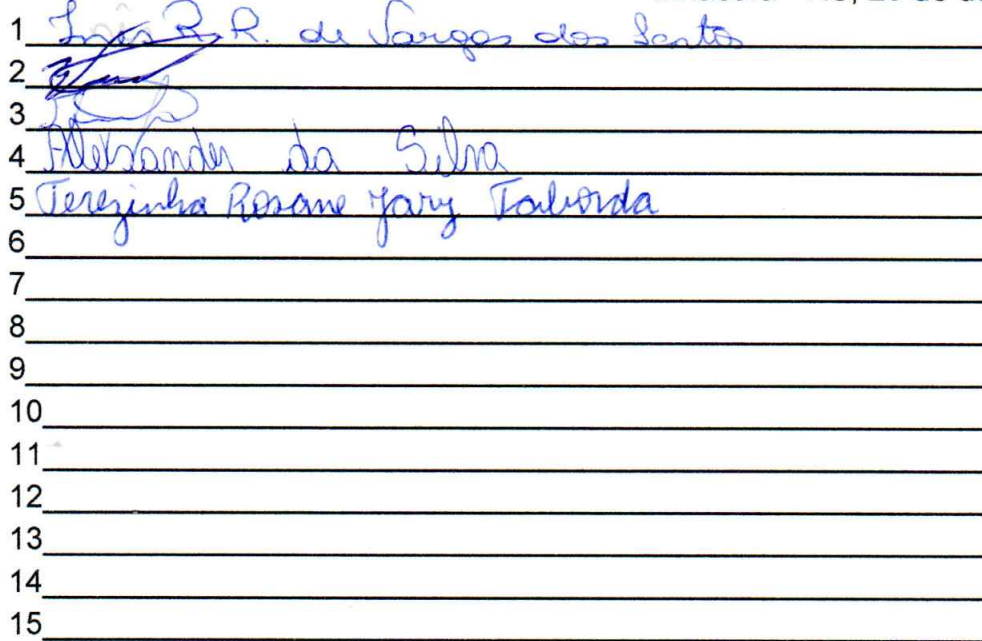 1 Inês R. R. de Vargas dos Santos
2
3
4 Aleksander da Silva
5 Terezinha Rosane Jary Taborda
6
7
8
9
10
11
12
13
14
15